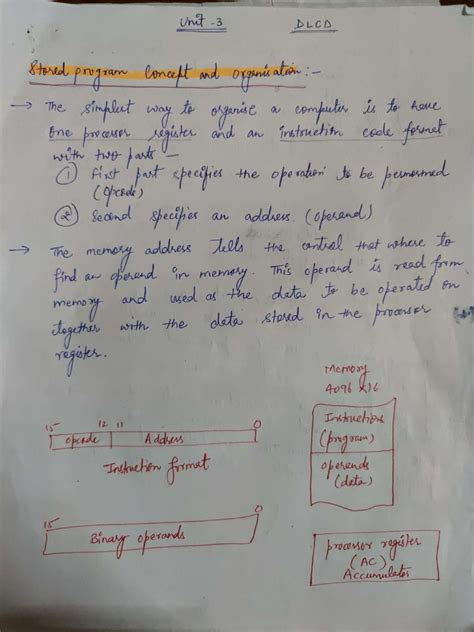 Unit -3
DLCD
Stored program Concept and Organisation :-
→ The simplest way to organise a computer is to have
one processor register and an instruction code format
with two parts -
① First part specifies the operation to be permormed
(Opcode)
② Second specifies an address. (operand)
→ The memory address tells the control that where to
find an operand in memory. This operand is read from
memory and used as the data to be operated on
together with the data stored in the processor
register.
Memory
4096 x 16
15 12 11 0
Opcode Address
Instruction format
Instructions
(program)
operands
(data)
15 0
Binary operands
processor register
(AC)
Accumulator